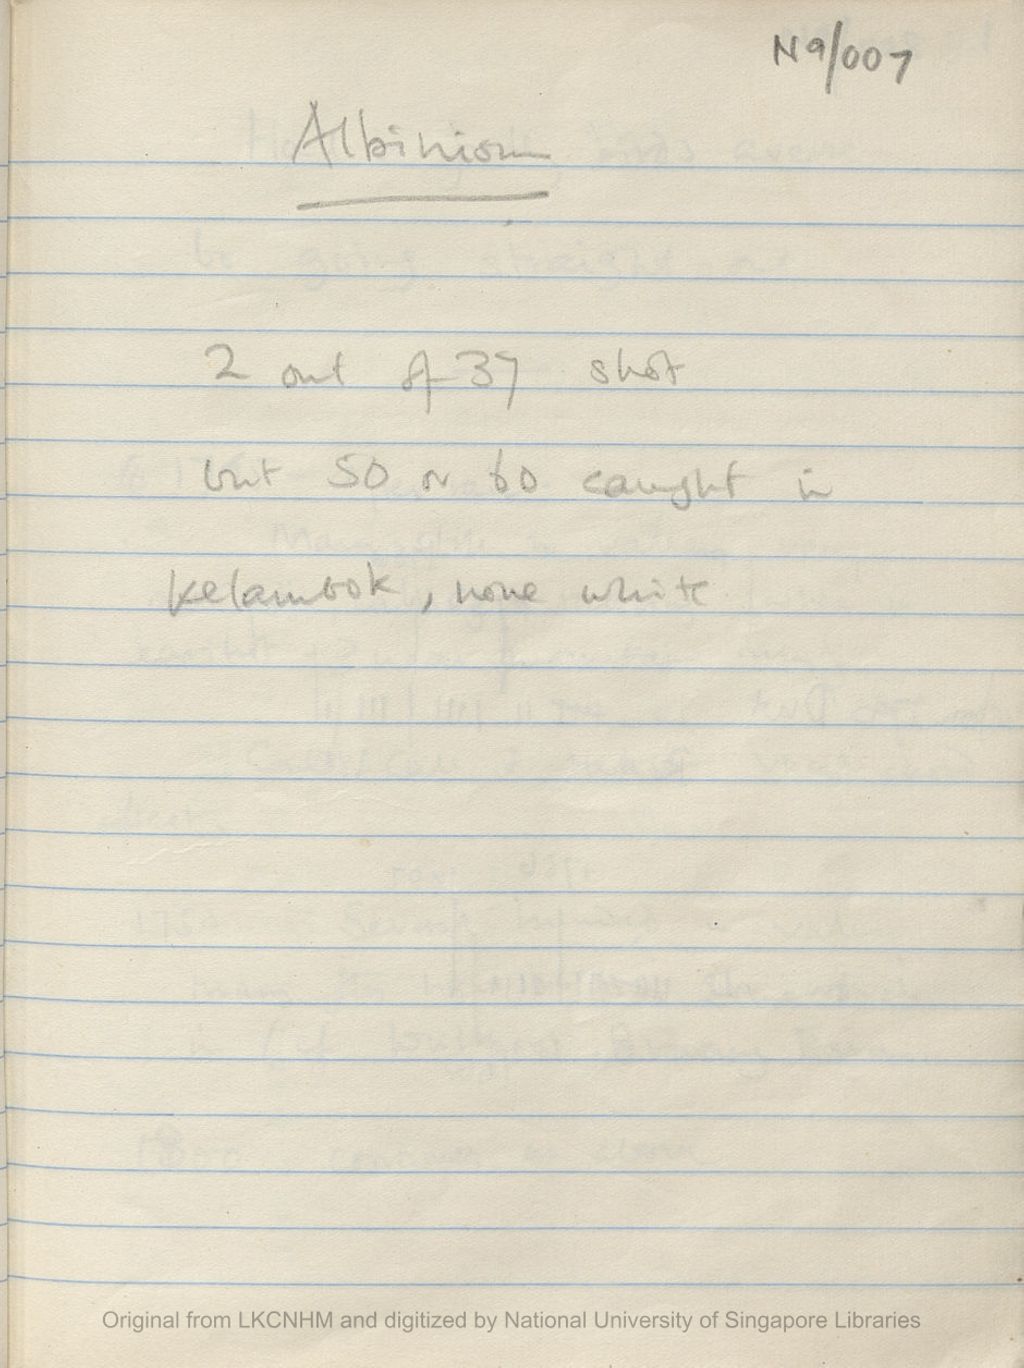 N9/007
Albinism
2 out of 37 shot
but 50 or 60 caught in
kelambok, none white
Original from LKCNHM and digitized by National University of Singapore Libraries